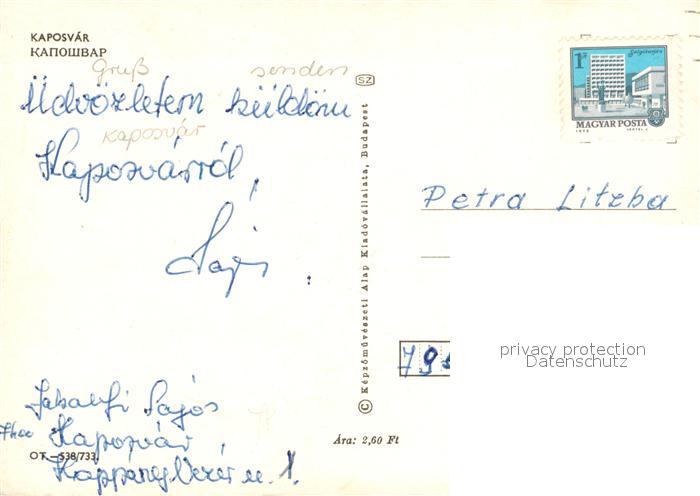 KAPOSVÁR
КАПОШВАР
Gruß senden
Üdvözletem küldöm
Kaposvár
Kaposvárról
Lajos
Lajos
Kaposvár
Koppány Vezér u. 1.
OT.—538/733.
SZ
© Képzőművészeti Alap Kiadóvállalata, Budapest
Ára: 2,60 Ft
1 Ft
Salgótarján
MAGYAR POSTA
1972
Petra Litzba
79
privacy protection
Datenschutz